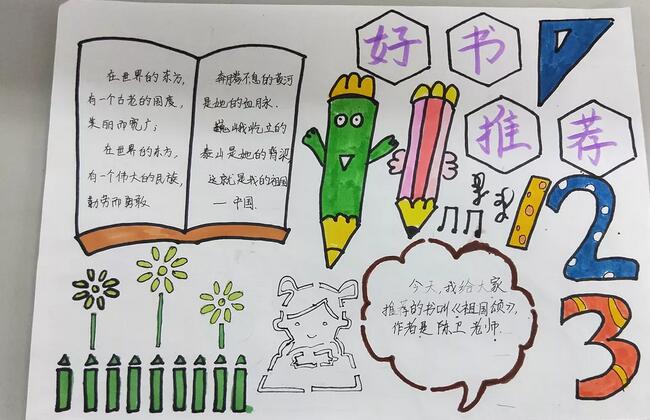 好书
推荐
在世界的东方,
有一个古老的国度,
美丽而宽广;
在世界的东方,
有一个伟大的民族,
勤劳而勇敢.
奔腾不息的黄河
是她的血脉.
巍峨屹立的
泰山是她的脊梁
这就是我的祖国
—中国.
今天,我给大家
推荐的书叫《祖国颂》,
作者是陈卫老师.
1
2
3